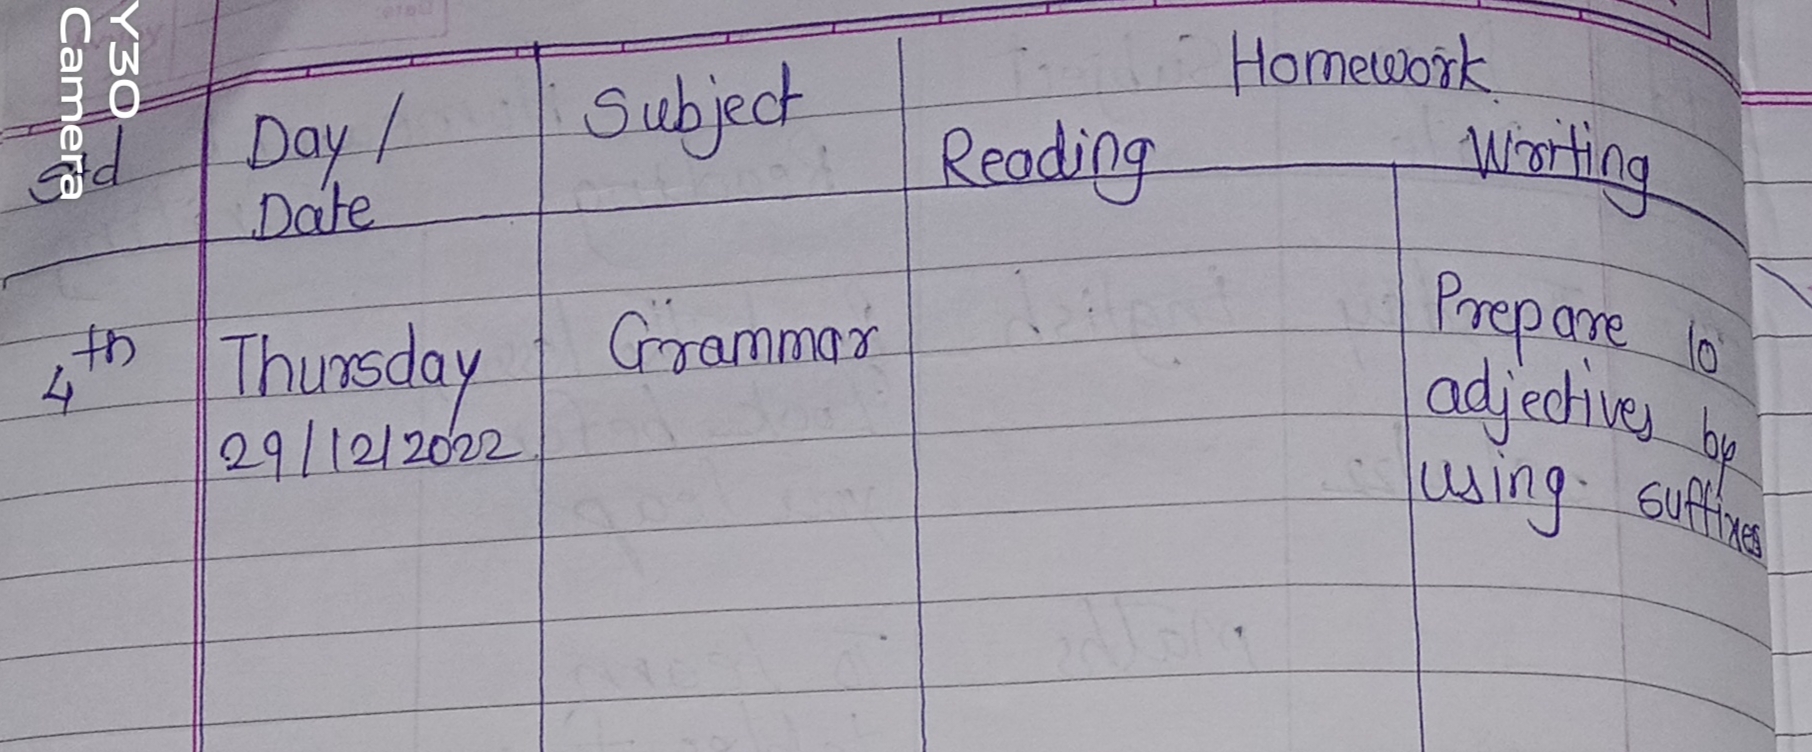 Y30
Camera
Homework
Std Day / Subject Reading Writing
Date
4th Thursday Grammar Prepare 10
29/12/2022 adjectives by
using suffixes